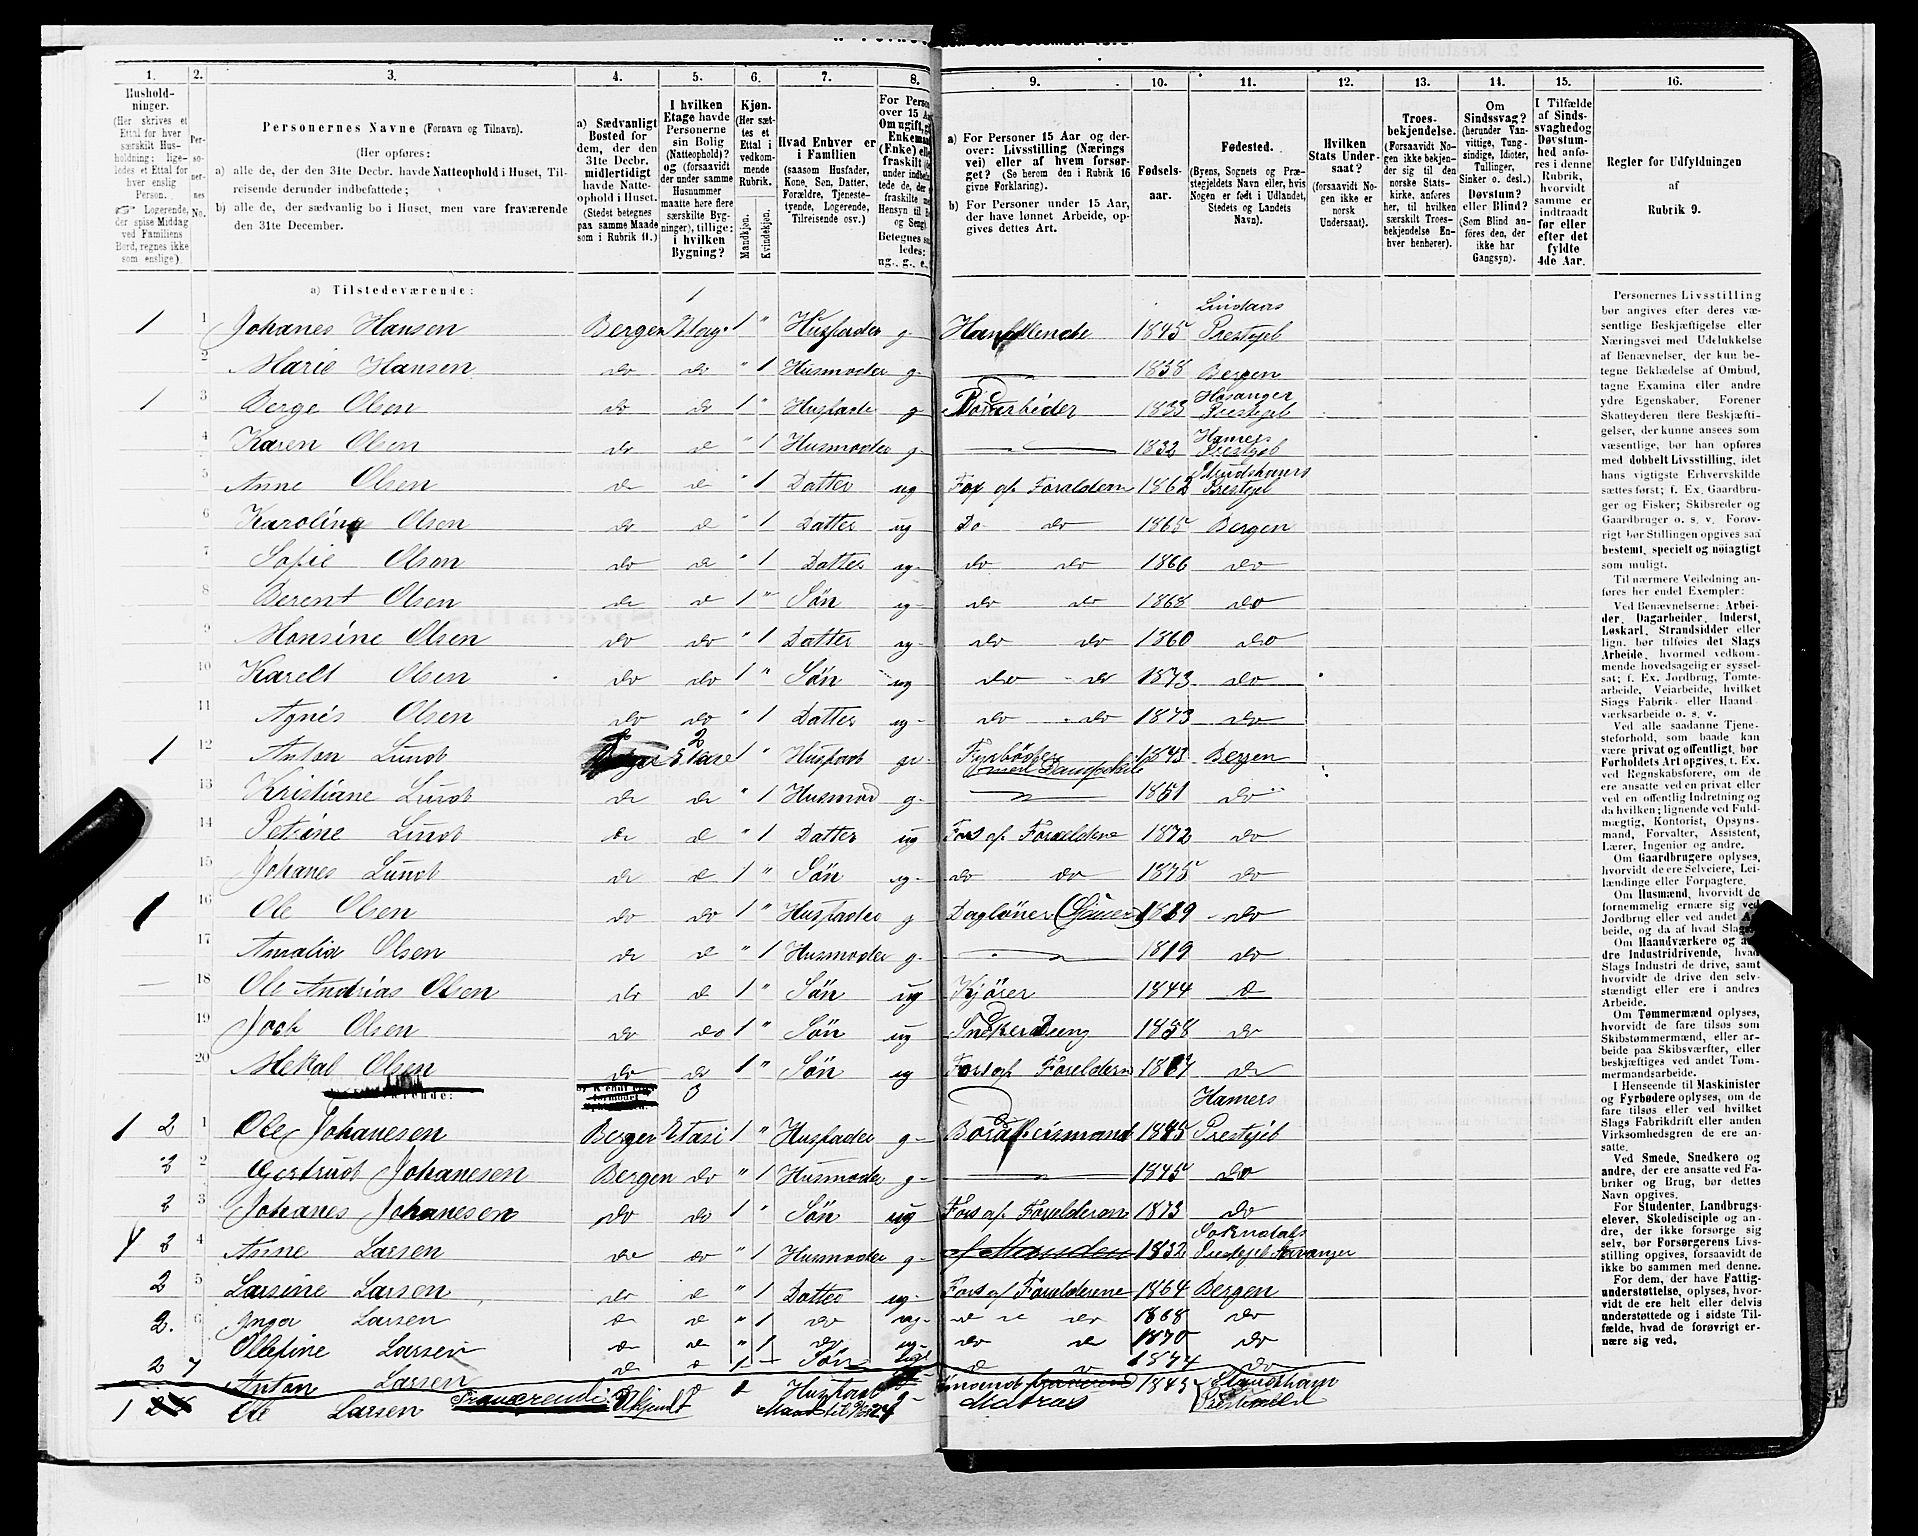 1.
2.
3.
4.
5.
6.
7.
8.
9.
10.
11.
12.
13.
14.
15.
16.
Hushold-
ninger.
(Her skrives et
Ettal for hver
særskilt Hus-
holdning; lige-
ledes et Ettal for
hver enslig
Person.
Logerende,
der spise Middag
ved Familiens
Bord, regnes ikke
som enslige).
Per-
so-
ner-
nes
No.
Personernes Navne (Fornavn og Tilnavn).
(Her opføres:
a) alle de, der den 31te Decbr. havde Natteophold i Huset, Til-
reisende derunder indbefattede;
b) alle de, der sædvanlig bo i Huset, men vare fraværende
den 31te December.
a) Sædvanligt
Bosted for
dem, der den
31te Decbr.
midlertidigt
havde Natte-
ophold i Huset.
(Stedet betegnes
paa samme Maade
som i Rubrik 11.)
I hvilken
Etage havde
Personerne
sin Bolig
(Natteophold)?
og (forsaavidt
der under samme
Husnummer
maatte høre flere
særskilte Byg-
ninger), tillige:
i hvilken
Bygning?
Kjøn.
(Her sæt-
tes et
Ettal i
vedkom-
mende
Rubrik.
Mandkjøn.
Kvindekjøn.
Hvad Enhver er
i Familien
(saasom Husfader,
Kone, Søn, Datter,
Forældre, Tjeneste-
tyende, Logerende,
Tilreisende osv.)
For Person
over 15 Aa
Om ugift, g
Enkemand
(Enke) ell
fraskilt
Betegnes
ledes:
ug., g., e.,
a) For Personer 15 Aar og der-
over: Livsstilling (Nærings
vei) eller af hvem forsør-
get? (Se herom den i Rubrik 16
givne Forklaring).
b) For Personer under 15 Aar,
der have lønnet Arbeide, op-
gives dettes Art.
Fødsels-
aar.
Fødested.
(Byens, Sognets og Præ-
stegjeldets Navn eller, hvis
Nogen er født i Udlandet,
Stedets og Landets
Navn).
Hvilken
Stats Under-
saat?
(forsaavidt No-
gen ikke er
norsk
Undersaat).
Troes-
bekjendelse.
(Forsaavidt No-
gen ikke bekjen-
der sig til den
norske Stats-
kirke, anføres
her, til hvilken
særskilt Troes-
bekjendelse En-
hver henhører).
Om
Sindssvag?
(herunder Van-
vittige, Tung-
sindige, Idioter,
Tullinger,
Sinker o. desl.)
Døvstum?
eller Blind?
(Som Blind an-
føres den, der
ikke har
Gangsyn).
I Tilfælde
af Sinds-
svaghed og
Døvstum-
hed anfø-
res i denne
Rubrik,
hvorvidt
samme er
indtraadt
før eller
efter det
fyldte
4de Aar.
Regler for Udfyldningen
af
Rubrik 9.
a) Tilstedeværende:
1
1 1 Johanes Hansen Bergen Etage 1 " Husfader g- Handlende 1845 Lindaas Prestgjeb
2 Marie Hansen do do " 1 Husmoder g- 1838 Bergen
1 3 Berge Olsen do do 1 " Husfade g 1833 Hosanger Prestgjeb
4 Karen Olsen do d " 1 Husmoder g- 1832 Hamers Prestgjeb
5 Anne Olsen d d " 1 Datter ug For af Foraldern 1862 Prestgjel
6 Karoline Olsen do d " 1 Datter ug Do do 1865 Bergen
7 Sofie Olsen do d " 1 Datter ug- do do 1866 do
8 Berent Olsen d d 1 " Søn ug- do do 1868 do
9 Monsine Olsen do do " 1 Datter ug- do do 1860 do
10 Karelt Olsen do do 1 " Søn ug do do 1873 do
11 Agnes Olsen do do " 1 Datter ug- do do 1873 do
2
1 12 Anton Lundt Etase 1 " Husfadt g- Fyrbøder 1843 Bergen
13 Kristiane Lundt d d " 1 Husmod g- 1851 do
14 Petrine Lundt d d " 1 Datter ug Fors af Foraldene 1872 do
15 Johanes Lundt d d 1 " Søn ug- do do 1875 do
1 16 Ole Olsen do do 1 " Husfader g Dagløner 1819 do
17 Amalia Olsen d d " 1 Husmoder g- 1819 do
18 Ole Andrias Olsen do d 1 " Søn ug Kjører 1844 d
19 Olsen do do 1 " Søn ug Snekerdreng 1858 do
20 Mekal Olsen do d 1 " Søn ug Fors af Foreldern d
3
1 2 1 Ole Johanesen Bergen Etasi 1 " Husfader g- 1845 Hamers Prestgjeb
2 2 Gertrudt Johanesen Bergen do " 1 Husmoder g- 1845 do
2 3 Johanes Johanesen do do 1 " Søn ug Fors af Forelderne 1873 do
2 4 Anne Larsen do do " 1 Husmoder g- 1832 Soknedals Prestgjel Stavanger
2 5 Larsine Larsen do d " 1 Datter ug- Fors af Forelderene 1864 Bergen
2. 6 Inger Larsen d d " 1 do ug- 1868 do
Olefine Larsen d d " 1 do ug- do d 1870 do
2 7 Anton Larsen d d 1 Søn 1874 do
1 Ole Larsen Fraværende: Ukjendt 1 Husfadt g- Madras 1843
Personernes Livsstilling
bør angives efter deres væ-
sentlige Beskjæftigelse eller
Næringsvei med Udelukkelse
af Benævnelser, der kun be-
tegne Beklædelse af Ombud,
tagne Examina eller andre
ydre Egenskaber. Forener
Skatteyderen flere Beskjæfti-
gelser, der kunne ansees som
væsentlige, bør han opføres
med dobbelt Livsstilling, idet
hans vigtigste Erhvervskilde
sættes først; f. Ex. Gaardbru-
ger og Fisker; Skibsreder og
Gaardbruger o. s. v. Forøv-
rigt bør Stillingen opgives saa
bestemt, specielt og nøiagtigt
som muligt.
Til nærmere Veiledning an-
føres her endel Exempler:
Ved Benævnelserne: Arbei-
der, Dagarbeider, Inderst,
Løskarl, Strandsidder eller
lign. bør tilføies det Slags
Arbeide, hvormed vedkom-
mende hovedsagelig er syssel-
sat; f. Ex. Jordbrug, Tømte-
arbeide, Veiarbeide, hvilket
Slags Fabrik- eller Haand-
værksarbeide o. s. v.
Ved alle saadanne Tjene-
steforhold, som baade kan
være privat og offentligt, bør
Forholdets Art opgives, t. Ex.
ved Regnskabsførere, om de
ere ansatte ved en privat eller
ved en offentlig Indretning og
da hvilken; lignende ved Fuld-
mægtig, Kontorist, Opsyns-
mand, Forvalter, Assistent,
Lærer, Ingeniør og andre.
Om Gaardbrugere oplyses,
hvorvidt de ere Selveiere, Lei-
lændinge eller Forpagtere.
Om Husmænd, hvorvidt de
fornemmelig ernære sig ved
Jordbrug eller ved andet Ar-
beide, og da af hvad Slags.
Om Haandværkere og an-
dre Industridrivende, hvad
Slags Industri de drive, samt
hvorvidt de drive den selv-
stændigt eller ere i andres
Arbeide.
Om Tømmermænd oplyses,
hvorvidt de fare tilsøs som
Skibstømmermænd, eller ar-
beide paa Skibsværfter, eller
beskjæftiges ved andet Tøm-
mermandsarbeide.
I Henseende til Maskinister
og Fyrbødere oplyses, om de
fare tilsøs eller ved hvilket
Slags Fabrikdrift eller anden
Virksomhedsgren de ere an-
satte.
Ved Smede, Snedkere og
andre, der ere ansatte ved Fa-
briker og Brug, bør dettes
Navn opgives.
For Studenter, Landbrugs-
elever, Skoledisciple og an-
dre, der ikke forsørge sig
selv, bør Forsørgerens Livs-
stilling opgives, forsaavidt de
ikke bo sammen med denne.
For dem, der have Fattig-
understøttelse, oplyses, hvor-
vidt de ere helt eller delvis
understøttede og i sidste Til-
fælde, hvad de forøvrigt er-
nære sig ved.